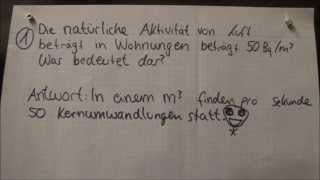 ① Die natürliche Aktivität von Luft
beträgt in Wohnungen beträgt 50 Bq/m³
Was bedeutet das?
Antwort: In einem m³ finden pro Sekunde
50 Kernumwandlungen statt.